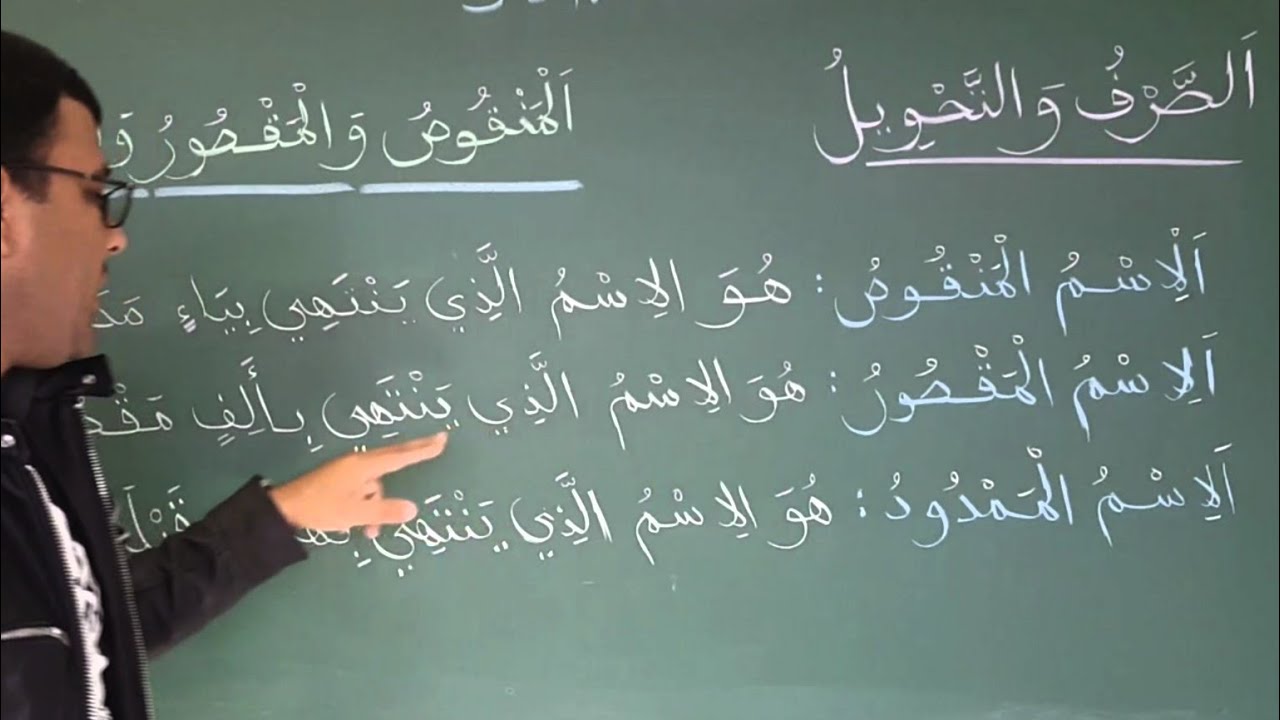 اَلصَّرْفُ وَالتَّحْوِيلُ
اَلْمَنْقُوصُ وَالْمَقْصُورُ
اَلِاسْمُ الْمَنْقُوصُ: هُوَ الِاسْمُ الَّذِي يَنْتَهِي بِيَاءٍ
اَلِاسْمُ الْمَقْصُورُ: هُوَ الِاسْمُ الَّذِي يَنْتَهِي بِأَلِفٍ
اَلِاسْمُ الْمَمْدُودُ: هُوَ الِاسْمُ الَّذِي يَنْتَهِي